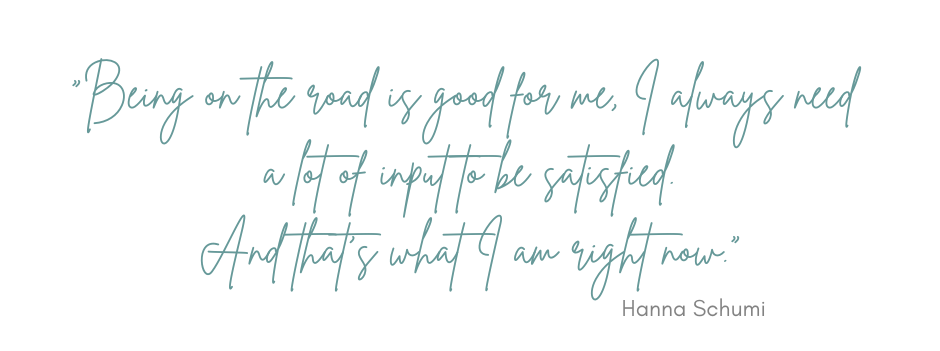 "Being on the road is good for me, I always need
a lot of input to be satisfied.
And that's what I am right now."
Hanna Schumi